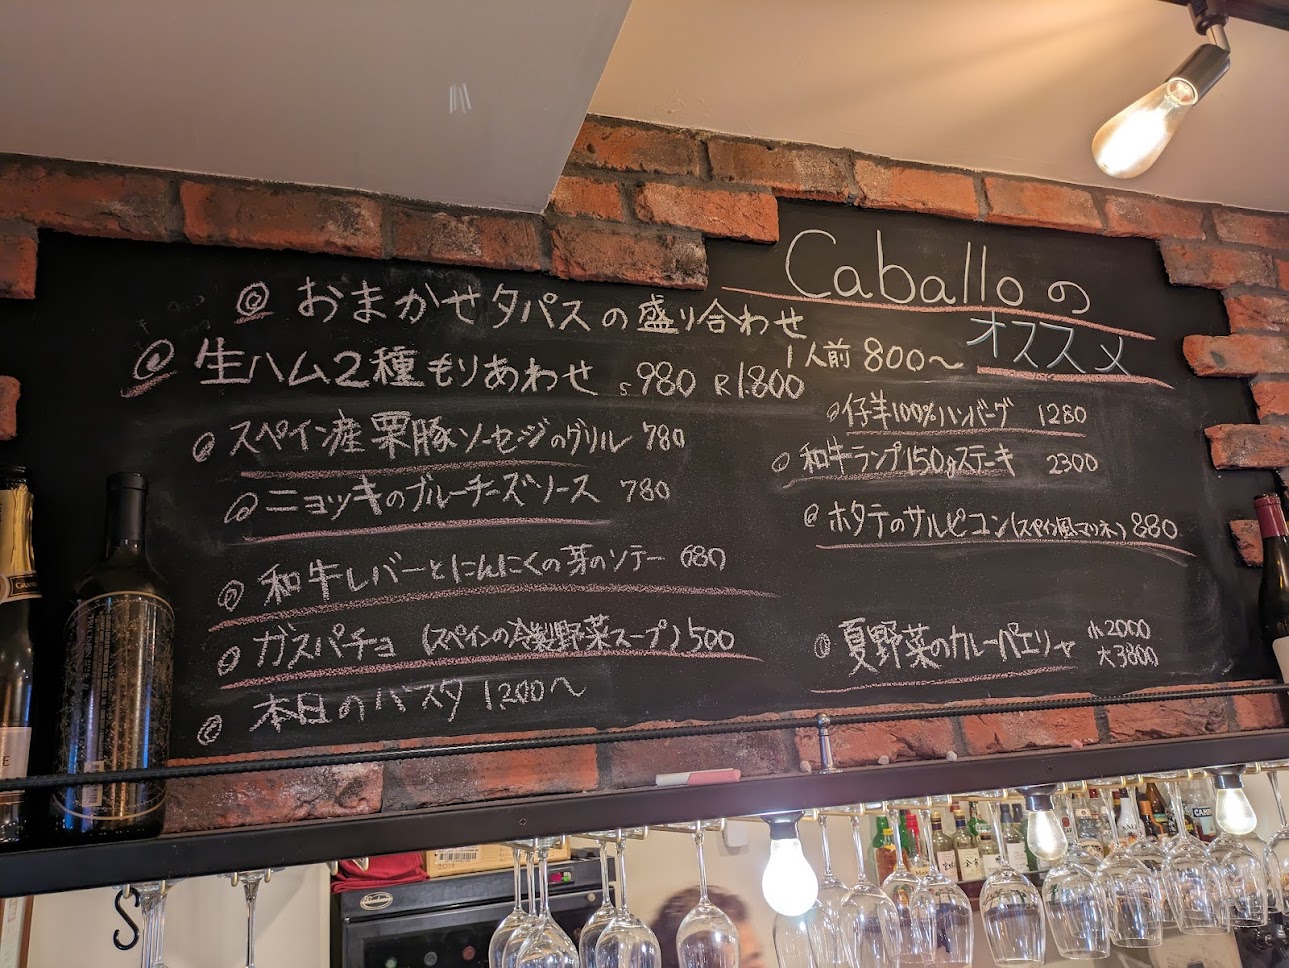 Caballoの
オススメ
◎ おまかせタパスの盛り合わせ
1人前 800〜
◎ 生ハム2種もりあわせ S 980 R 1.800
◎ スペイン産栗豚ソーセージのグリル 780
◎ ニョッキのブルーチーズソース 780
◎ 和牛レバーとにんにくの芽のソテー 680
◎ ガスパチョ (スペインの冷製野菜スープ) 500
◎ 本日のパスタ 1.200〜
◎ 仔羊100%ハンバーグ 1280
◎ 和牛ランプ150gステーキ 2300
◎ ホタテのサルピコン(スペイン風マリネ) 880
◎ 夏野菜のカレーパエリャ 小 2000
大 3800